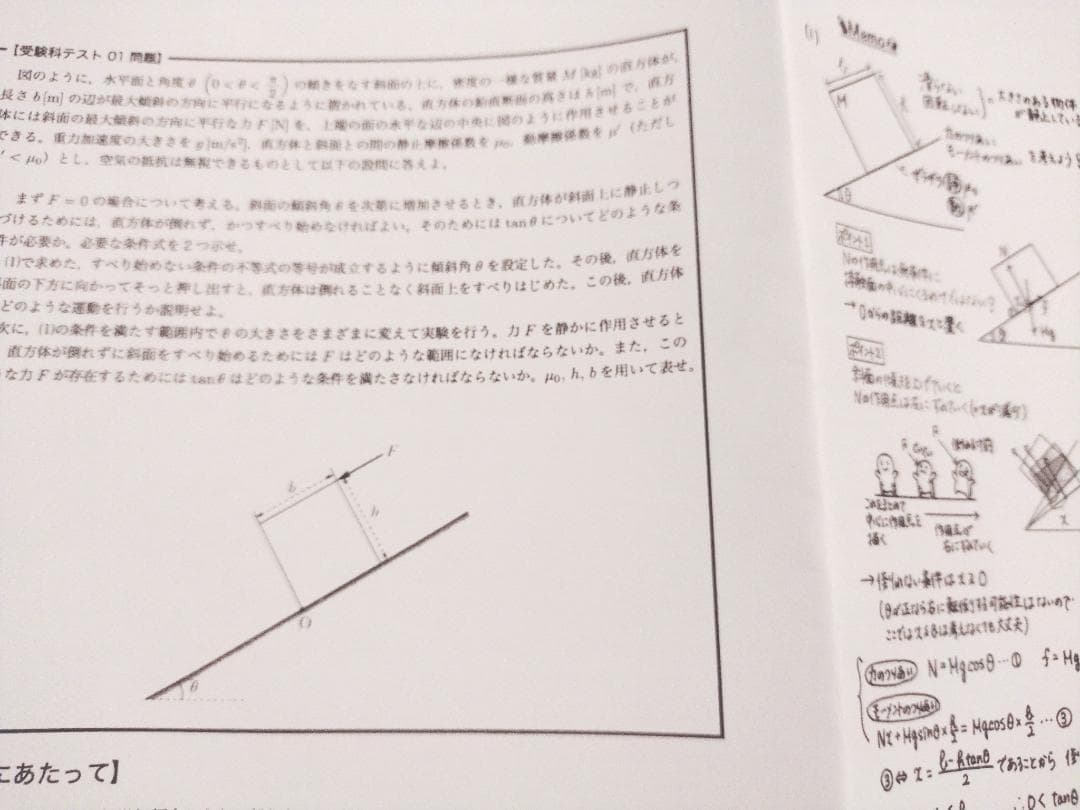 【受験科テスト 01 問題】
図のように、水平面と角度 θ (0 < θ < π/2) の傾きをなす斜面の上に、密度の一様な質量 M [kg] の直方体が、
長さ b[m] の辺が最大傾斜の方向に平行になるように置かれている。直方体の鉛直断面の高さは h[m] で、直方
体には斜面の最大傾斜の方向に平行な力 F [N] を、上端の面の水平な辺の中央に図のように作用させることが
できる。重力加速度の大きさを g[m/s²]、直方体と斜面との間の静止摩擦係数を μ₀、動摩擦係数を μ′ (ただし
′ < μ₀) とし、空気の抵抗は無視できるものとして以下の設問に答えよ。
まず F = 0 の場合について考える。斜面の傾斜角 θ を次第に増加させるとき、直方体が斜面上に静止しつ
づけるためには、直方体が倒れず、かつすべり始めなければよい。そのためには tan θ についてどのような条
件が必要か。必要な条件式を 2 つ示せ。
(1)で求めた、すべり始めない条件の不等式の等号が成立するように傾斜角 θ を設定した。その後、直方体を
面の下方に向かってそっと押し出すと、直方体は倒れることなく斜面上をすべりはじめた。この後、直方体
どのような運動を行うか説明せよ。
次に、(1)の条件を満たす範囲内で θ の大きさをさまざまに変えて実験を行う。力 F を静かに作用させると
直方体が倒れずに斜面をすべり始めるためには F はどのような範囲になければならないか。また、この
な力 F が存在するためには tan θ はどのような条件を満たさなければならないか。μ₀, h, b を用いて表せ。
F
b
h
O
θ
にあたって】
(1) Memo
M
θ
滑らない
回転しない
= 大きさのある物体
が静止している
力のつりあい
モーメントのつりあい を考えよう
ザラザラ
μ₀
μ′
ポイント1
Nの作用点は無条件に
接触面の中心にくるわけではない?
→ Oからの距離をxと置く
N
Mg
θ
ポイント2
斜面の
Nの作用点は左にずれていく
R
R
倒れる寸前
これをまとめて
中心に作用点を
描く
作用点が
右にずれていく
x
→ 倒れない条件は x≧0
(θが正なら右に転倒する可能性はないので
ここでは x≦bは考えなくても大丈夫)
力のつりあい N=Mgcosθ…① f=Mg
モーメントのつりあい
Nx+Mgsinθ×h/2=Mgcosθ×b/2 …③
③⇔ x= (b-htanθ)/2 であることから 倒
∴0< tan